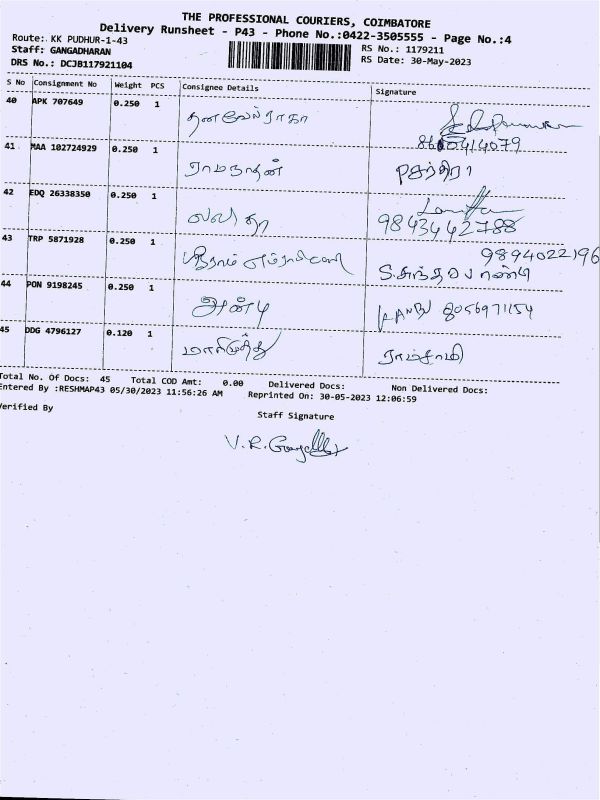 THE PROFESSIONAL COURIERS, COIMBATORE
Delivery Runsheet - P43 - Phone No.:0422-3505555 - Page No.:4
Route: KK PUDHUR-1-43
RS No.: 1179211
Staff: GANGADHARAN
RS Date: 30-May-2023
DRS No.: DCJB117921104
S No Consignment No Weight PCS Consignee Details Signature
40 APK 707649 0.250 1 தனவேல்ராகா
8610414079
41 MAA 102724929 0.250 1 ராமநாதன்
42 EDQ 26338350 0.250 1 லலிதா
9843442788
43 TRP 5871928 0.250 1
9894022196
44 PON 9198245 0.250 1 அன்பு
8056971154
45 DDG 4796127 0.120 1 மாரிமுத்து ராமசாமி
Total No. Of Docs: 45 Total COD Amt: 0.00 Delivered Docs: Non Delivered Docs:
Entered By :RESHMAP43 05/30/2023 11:56:26 AM Reprinted On: 30-05-2023 12:06:59
Verified By
Staff Signature